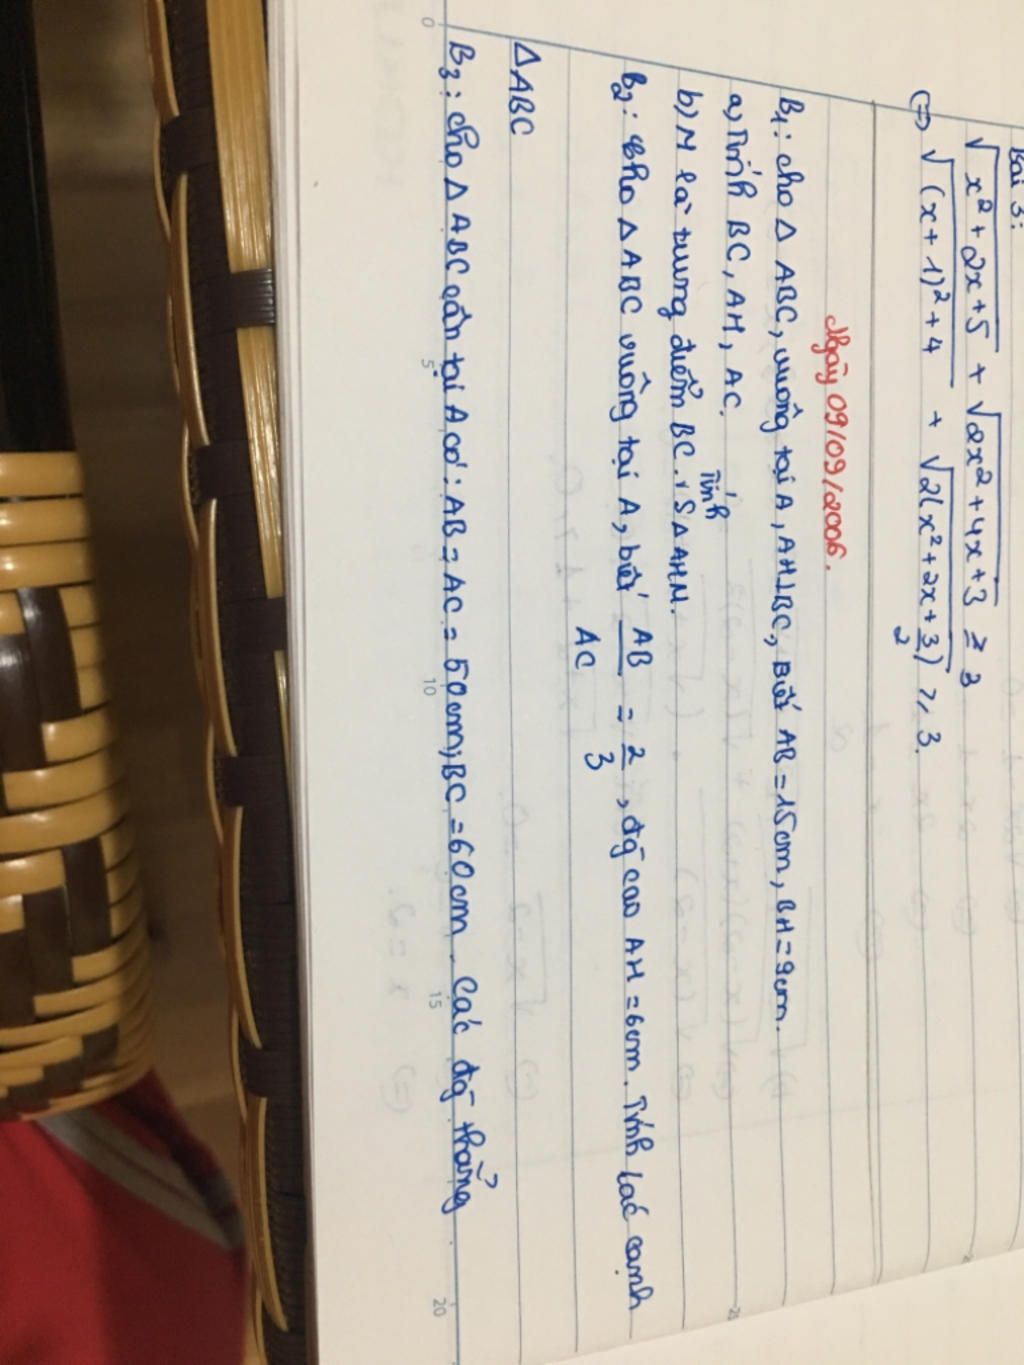 Bài 3:
√x² + 2x + 5 + √2x² + 4x + 3 ≥ 3
(=) √(x + 1)² + 4 + √2(x² + 2x + 3/2) ≥ 3.
Ngày 09/09/2006.
B1: cho Δ ABC, vuông tại A, AH⊥BC, Biết AB = 15cm, BH = 9cm.
a, Tính BC, AH, AC.
b) M là trung điểm BC. Tính SΔAHM.
B2: Cho Δ ABC vuông tại A, biết AB/AC = 2/3, đg cao AH = 6cm. Tính các cạnh
Δ ABC
B3: cho Δ ABC cân tại A có: AB = AC = 50cm; BC = 60cm. Các đg thẳng
0 5 10 15 20